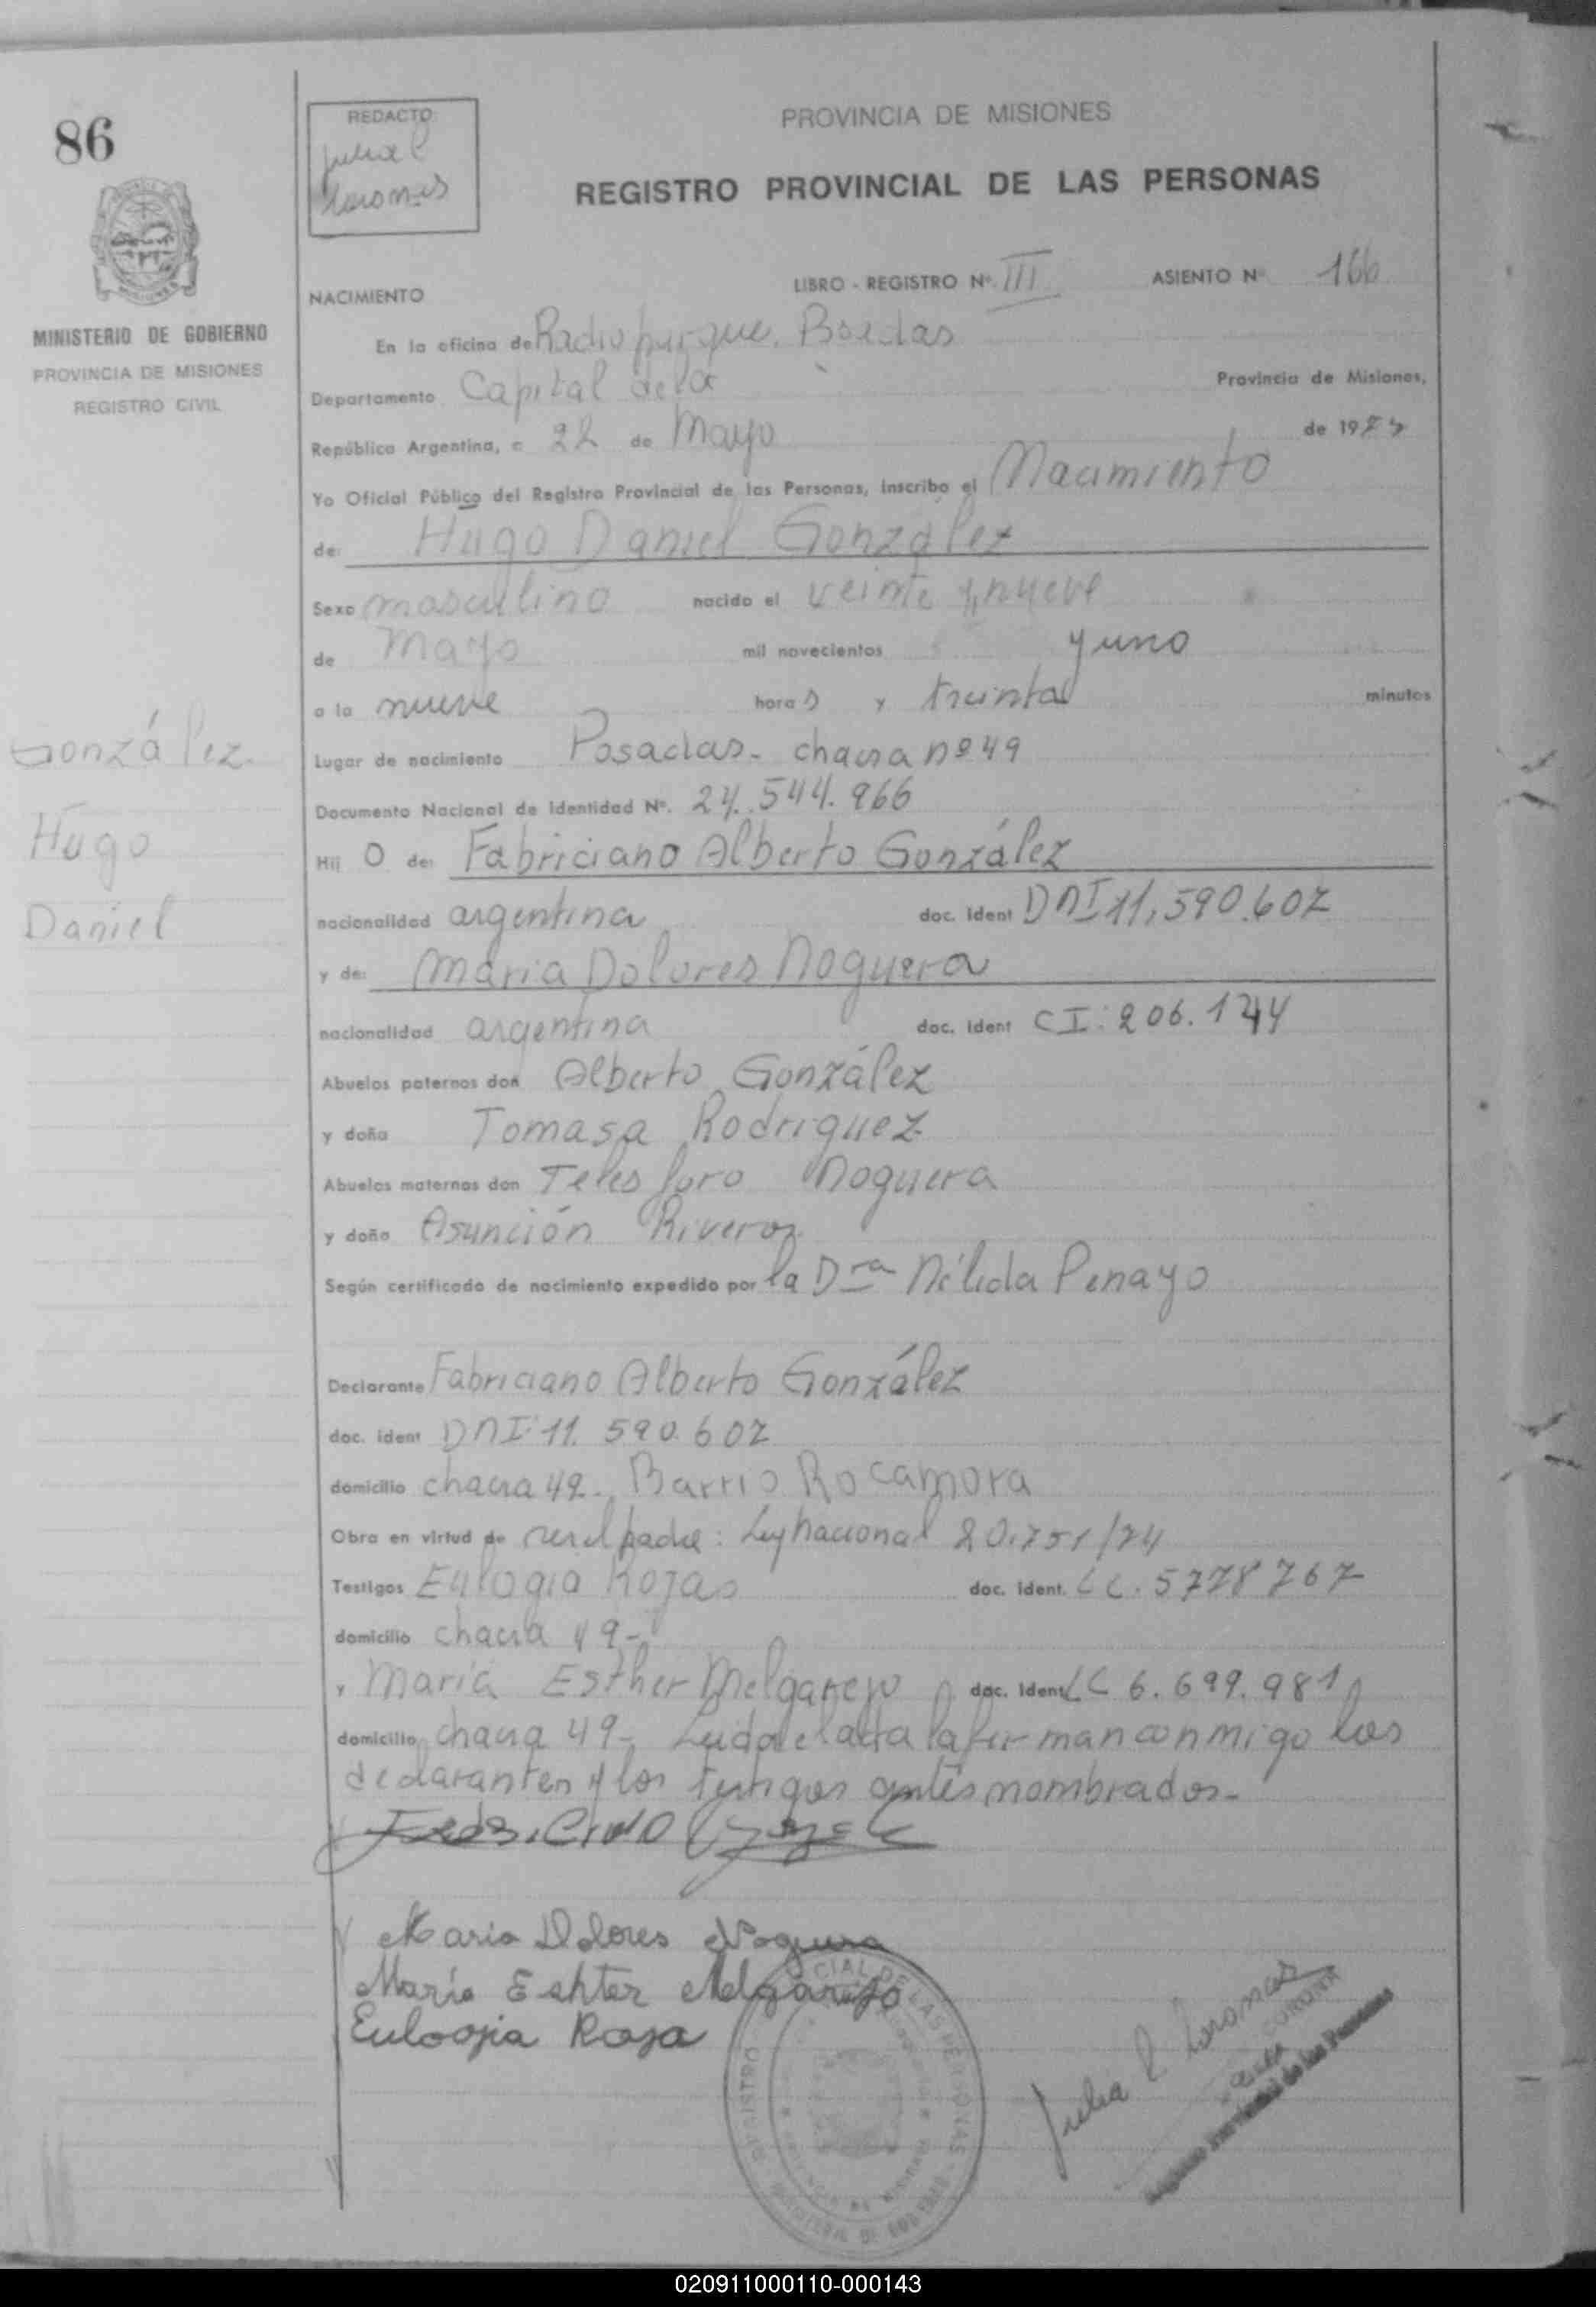 86
REDACTO
PROVINCIA DE MISIONES
REGISTRO PROVINCIAL DE LAS PERSONAS
NACIMIENTO
LIBRO - REGISTRO Nº III ASIENTO Nº 166
MINISTERIO DE GOBIERNO
PROVINCIA DE MISIONES
REGISTRO CIVIL
En la oficina de
Departamento Capital de la Provincia de Misiones,
República Argentina, a 22 de Mayo de 19
Yo Oficial Público del Registro Provincial de las Personas, inscribo el Nacimiento
de: Hugo Daniel González
Sexo masculino nacido el veinte y nueve
de Mayo mil novecientos y uno
a la nueve hora s y treinta minutos
Lugar de nacimiento Posadas - chacra nº 49
González
Hugo
Daniel
Documento Nacional de Identidad Nº. 24.544.966
Hij o de: Fabriciano Alberto González
nacionalidad argentina doc. ident DNI 11,590.607
y de: Maria Dolores Noguera
nacionalidad argentina doc. ident CI: 206.144
Abuelos paternos don Alberto González
y doña Tomasa Rodriguez
Abuelos maternos don Telesforo Noguera
y doña Asunción
Según certificado de nacimiento expedido por la Dra Nélida Penayo
Declarante Fabriciano Alberto González
doc. ident DNI: 11.590.607
domicilio chacra 49 - Barrio Rocamora
Obra en virtud de ser el padre: Ley nacional 20.751/74
Testigos Eulogia Rojas doc. ident. LC. 5778767
domicilio chacra 49 -
y Maria Esther Melgarejo doc. ident LC 6.699.981
domicilio chacra 49 - Leida el acta la firman conmigo los
declarantes y los testigos antes nombrados -
Maria Dolores Noguera
María Eshter Melgarejo
Eulogia Roja
Julia
020911000110-000143